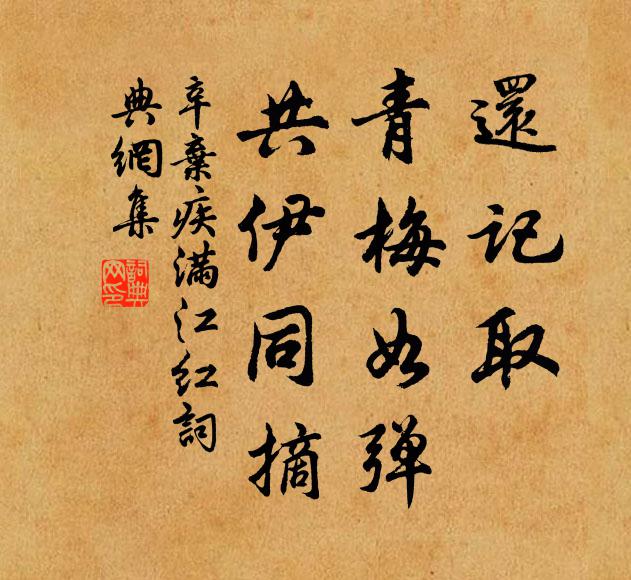 還記取
青梅如弹
共伊同摘
辛棄疾满江红詞
典網集
詞典网印